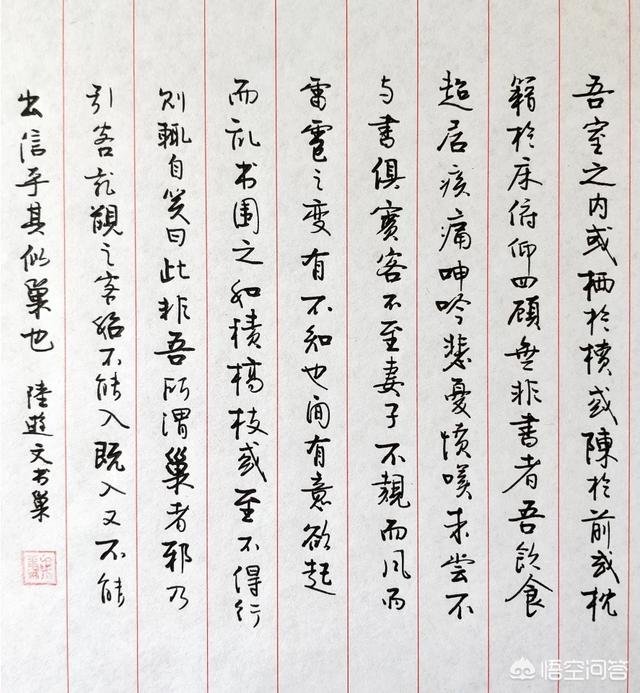 吾室之内或栖於櫝或陳於前或枕
籍於床俯仰四顧無非書者吾飲食
起居疾痛呻吟悲憂憤嘆未嘗不
与書俱賓客不至妻子不覿而风雨
雷雹之变有不知也间有意欲起
而乱书围之如積槁枝或至不得行
则輒自笑曰此非吾所谓巢者邪乃
引客就觀之客始不能入既入又不能
出信乎其似巢也 陸遊文书巢
悟空问答